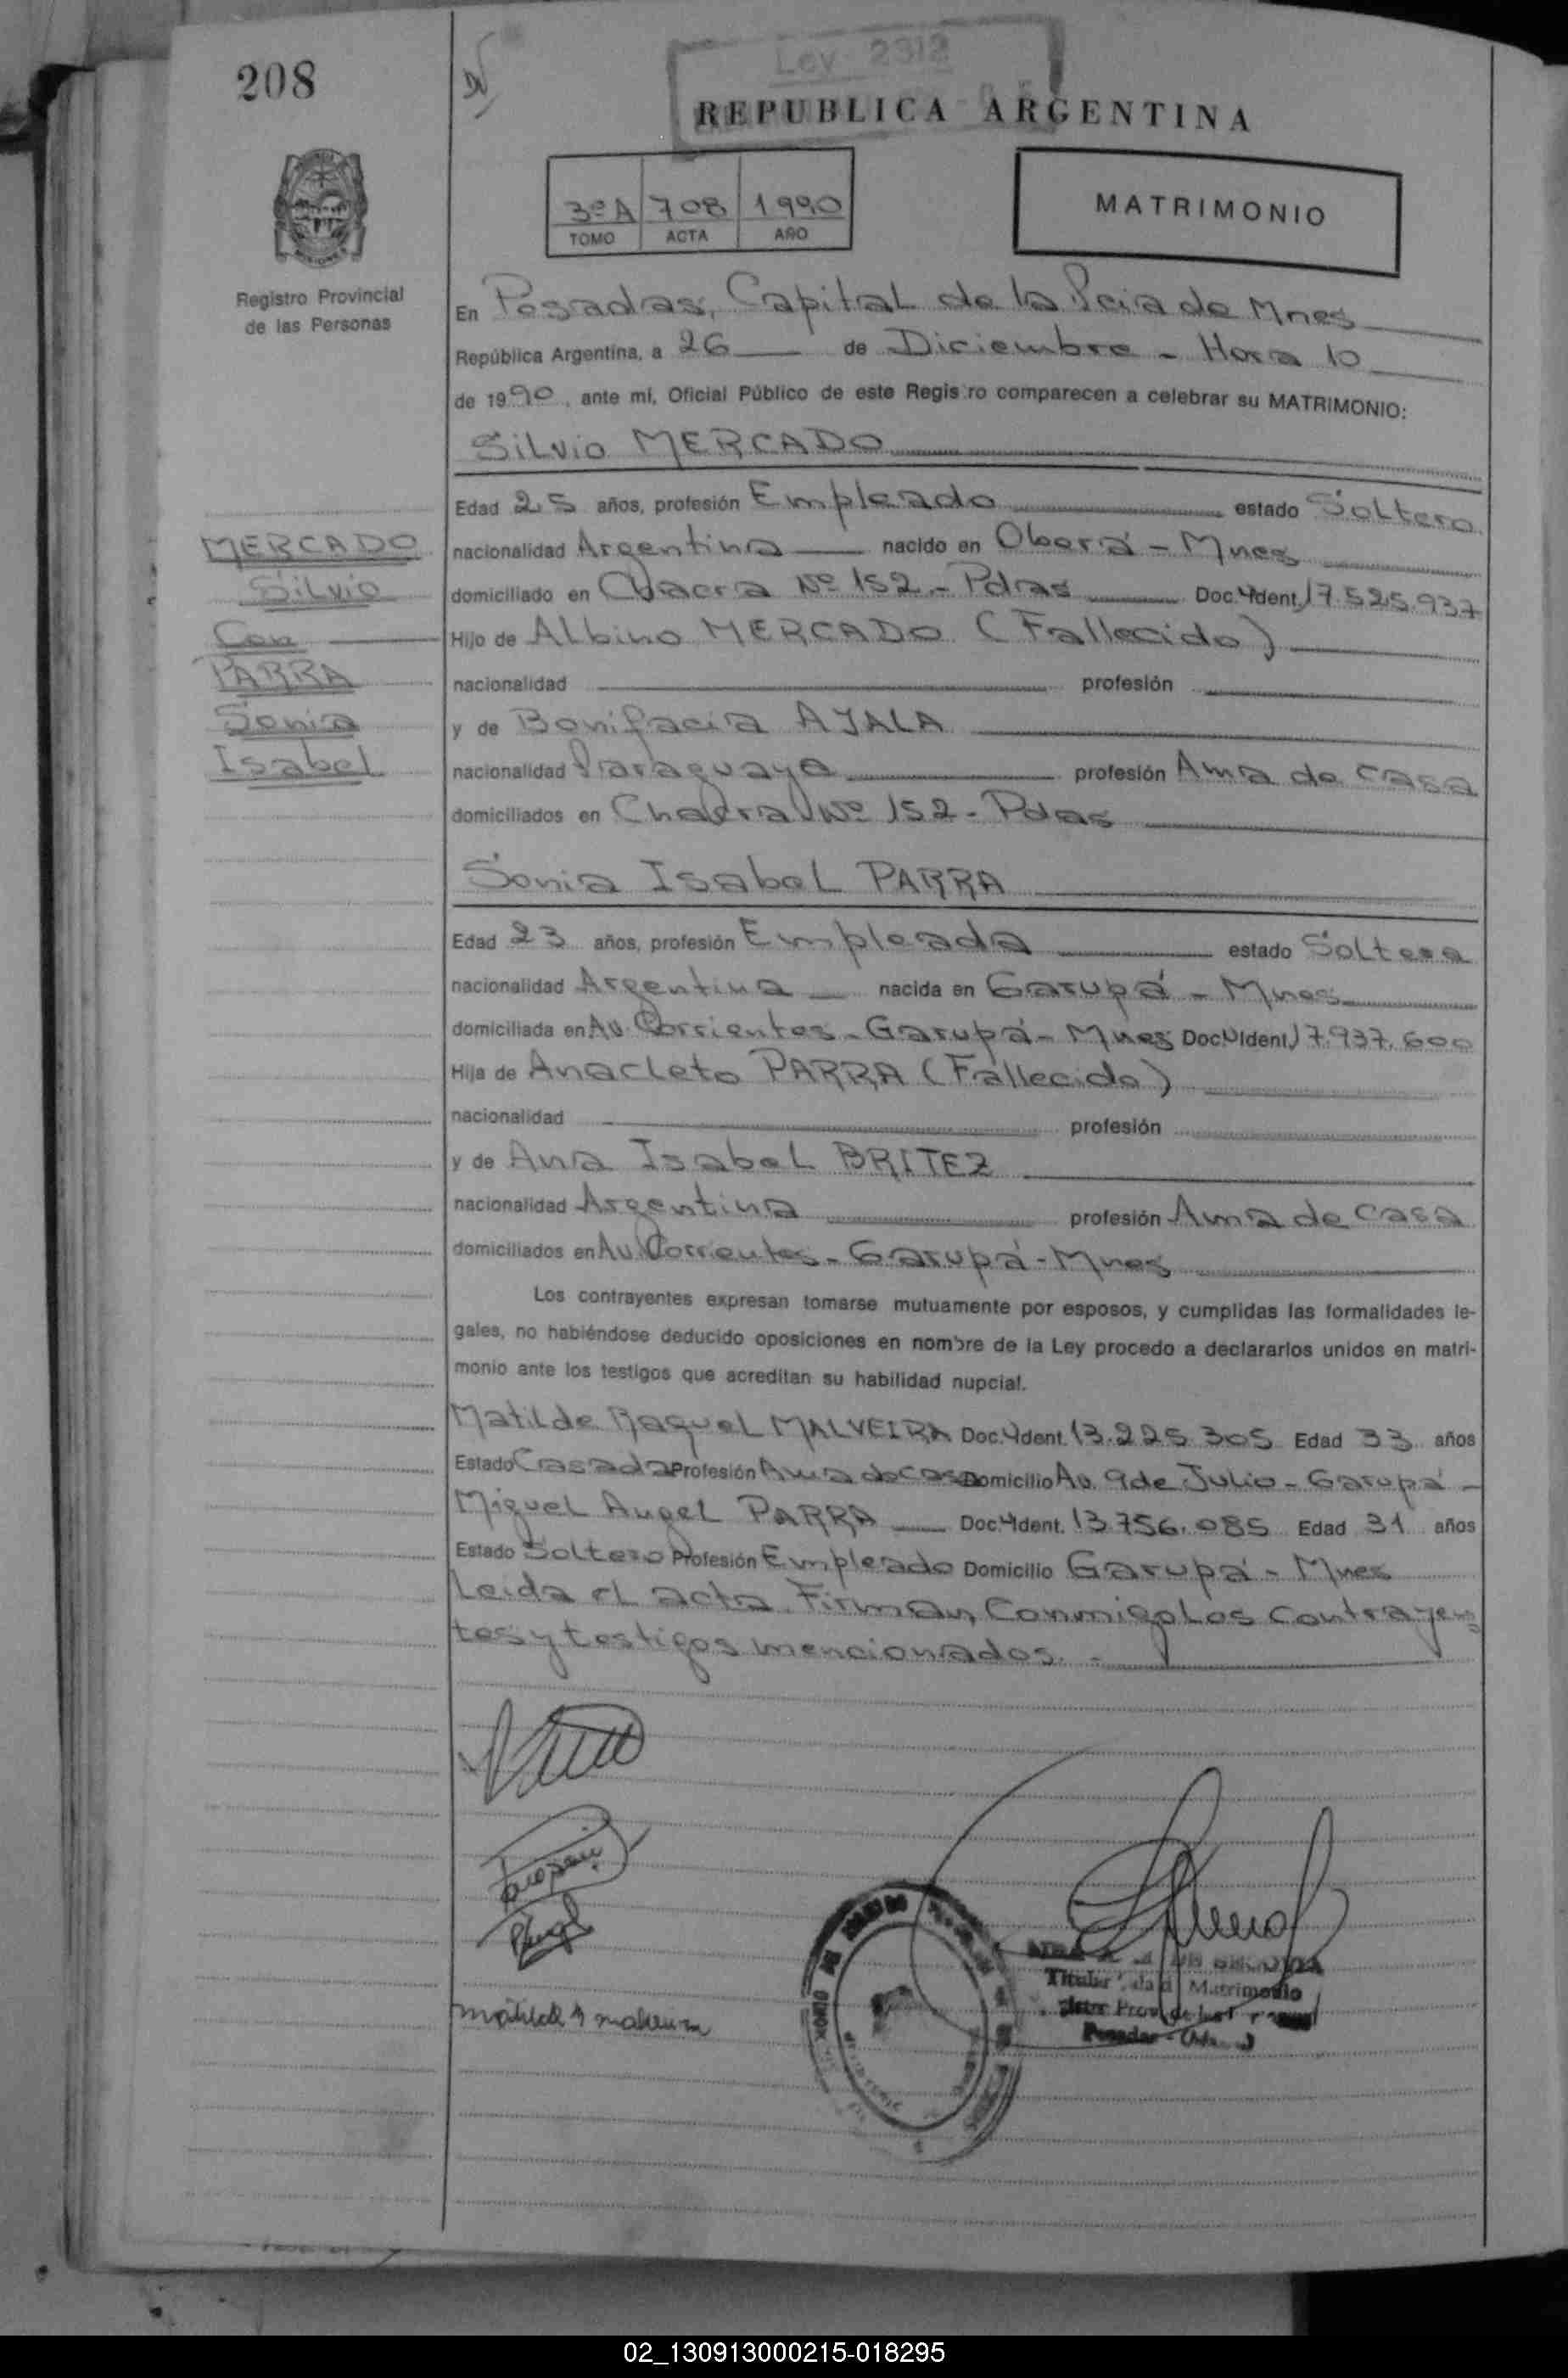 208
Ley 2312
REPUBLICA ARGENTINA
3º A 708 1990
TOMO ACTA AÑO
MATRIMONIO
MISIONES
Registro Provincial
de las Personas
En Posadas, Capital de la Pcia de Mnes
República Argentina, a 26 de Diciembre - Hora 10
de 1990, ante mí, Oficial Público de este Registro comparecen a celebrar su MATRIMONIO:
Silvio MERCADO
Edad 25 años, profesión Empleado estado Soltero
nacionalidad Argentina nacido en Oberá - Mnes
domiciliado en Chacra Nº 152 - Pdas Doc. Ident. 17.525.937
Hijo de Albino MERCADO (Fallecido)
nacionalidad profesión
y de Bonifacia AYALA
nacionalidad Paraguaya profesión Ama de casa
domiciliados en Chacra Nº 152 - Pdas
MERCADO
Silvio
Con
PARRA
Sonia
Isabel
Sonia Isabel PARRA
Edad 23 años, profesión Empleada estado Soltera
nacionalidad Argentina nacida en Garupá - Mnes
domiciliada en Av. Corrientes - Garupá - Mnes Doc. Ident. 17.937.600
Hija de Anacleto PARRA (Fallecido)
nacionalidad profesión
y de Ana Isabel BRITEZ
nacionalidad Argentina profesión Ama de casa
domiciliados en Av. Corrientes - Garupá - Mnes
Los contrayentes expresan tomarse mutuamente por esposos, y cumplidas las formalidades le-
gales, no habiéndose deducido oposiciones en nombre de la Ley procedo a declararlos unidos en matri-
monio ante los testigos que acreditan su habilidad nupcial.
Matilde Raquel MALVEIRA Doc. Ident. 13.225.305 Edad 33 años
Estado Casada Profesión Ama de casa Domicilio Av. 9 de Julio - Garupá -
Miguel Angel PARRA Doc. Ident. 13.756.085 Edad 31 años
Estado Soltero Profesión Empleado Domicilio Garupá - Mnes
Leida el acta. Firman, Conmigo Los Contrayen=
tes y testigos mencionados. -
Titular Matrimonio
Posadas
02_130913000215-018295